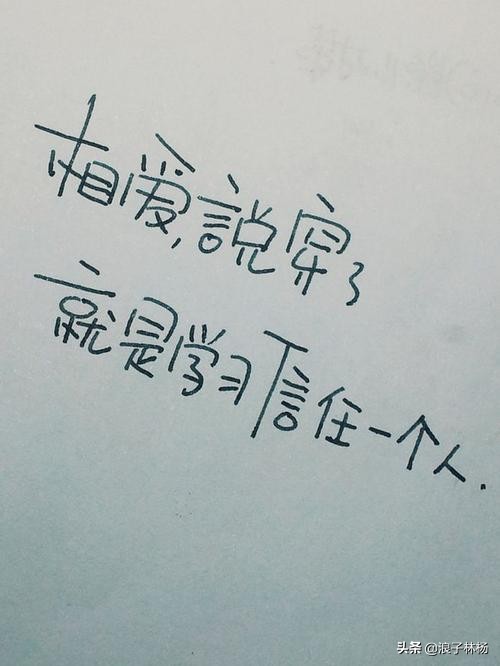 相爱,説穿了
就是学习信任一个人.
头条 @浪子林杨